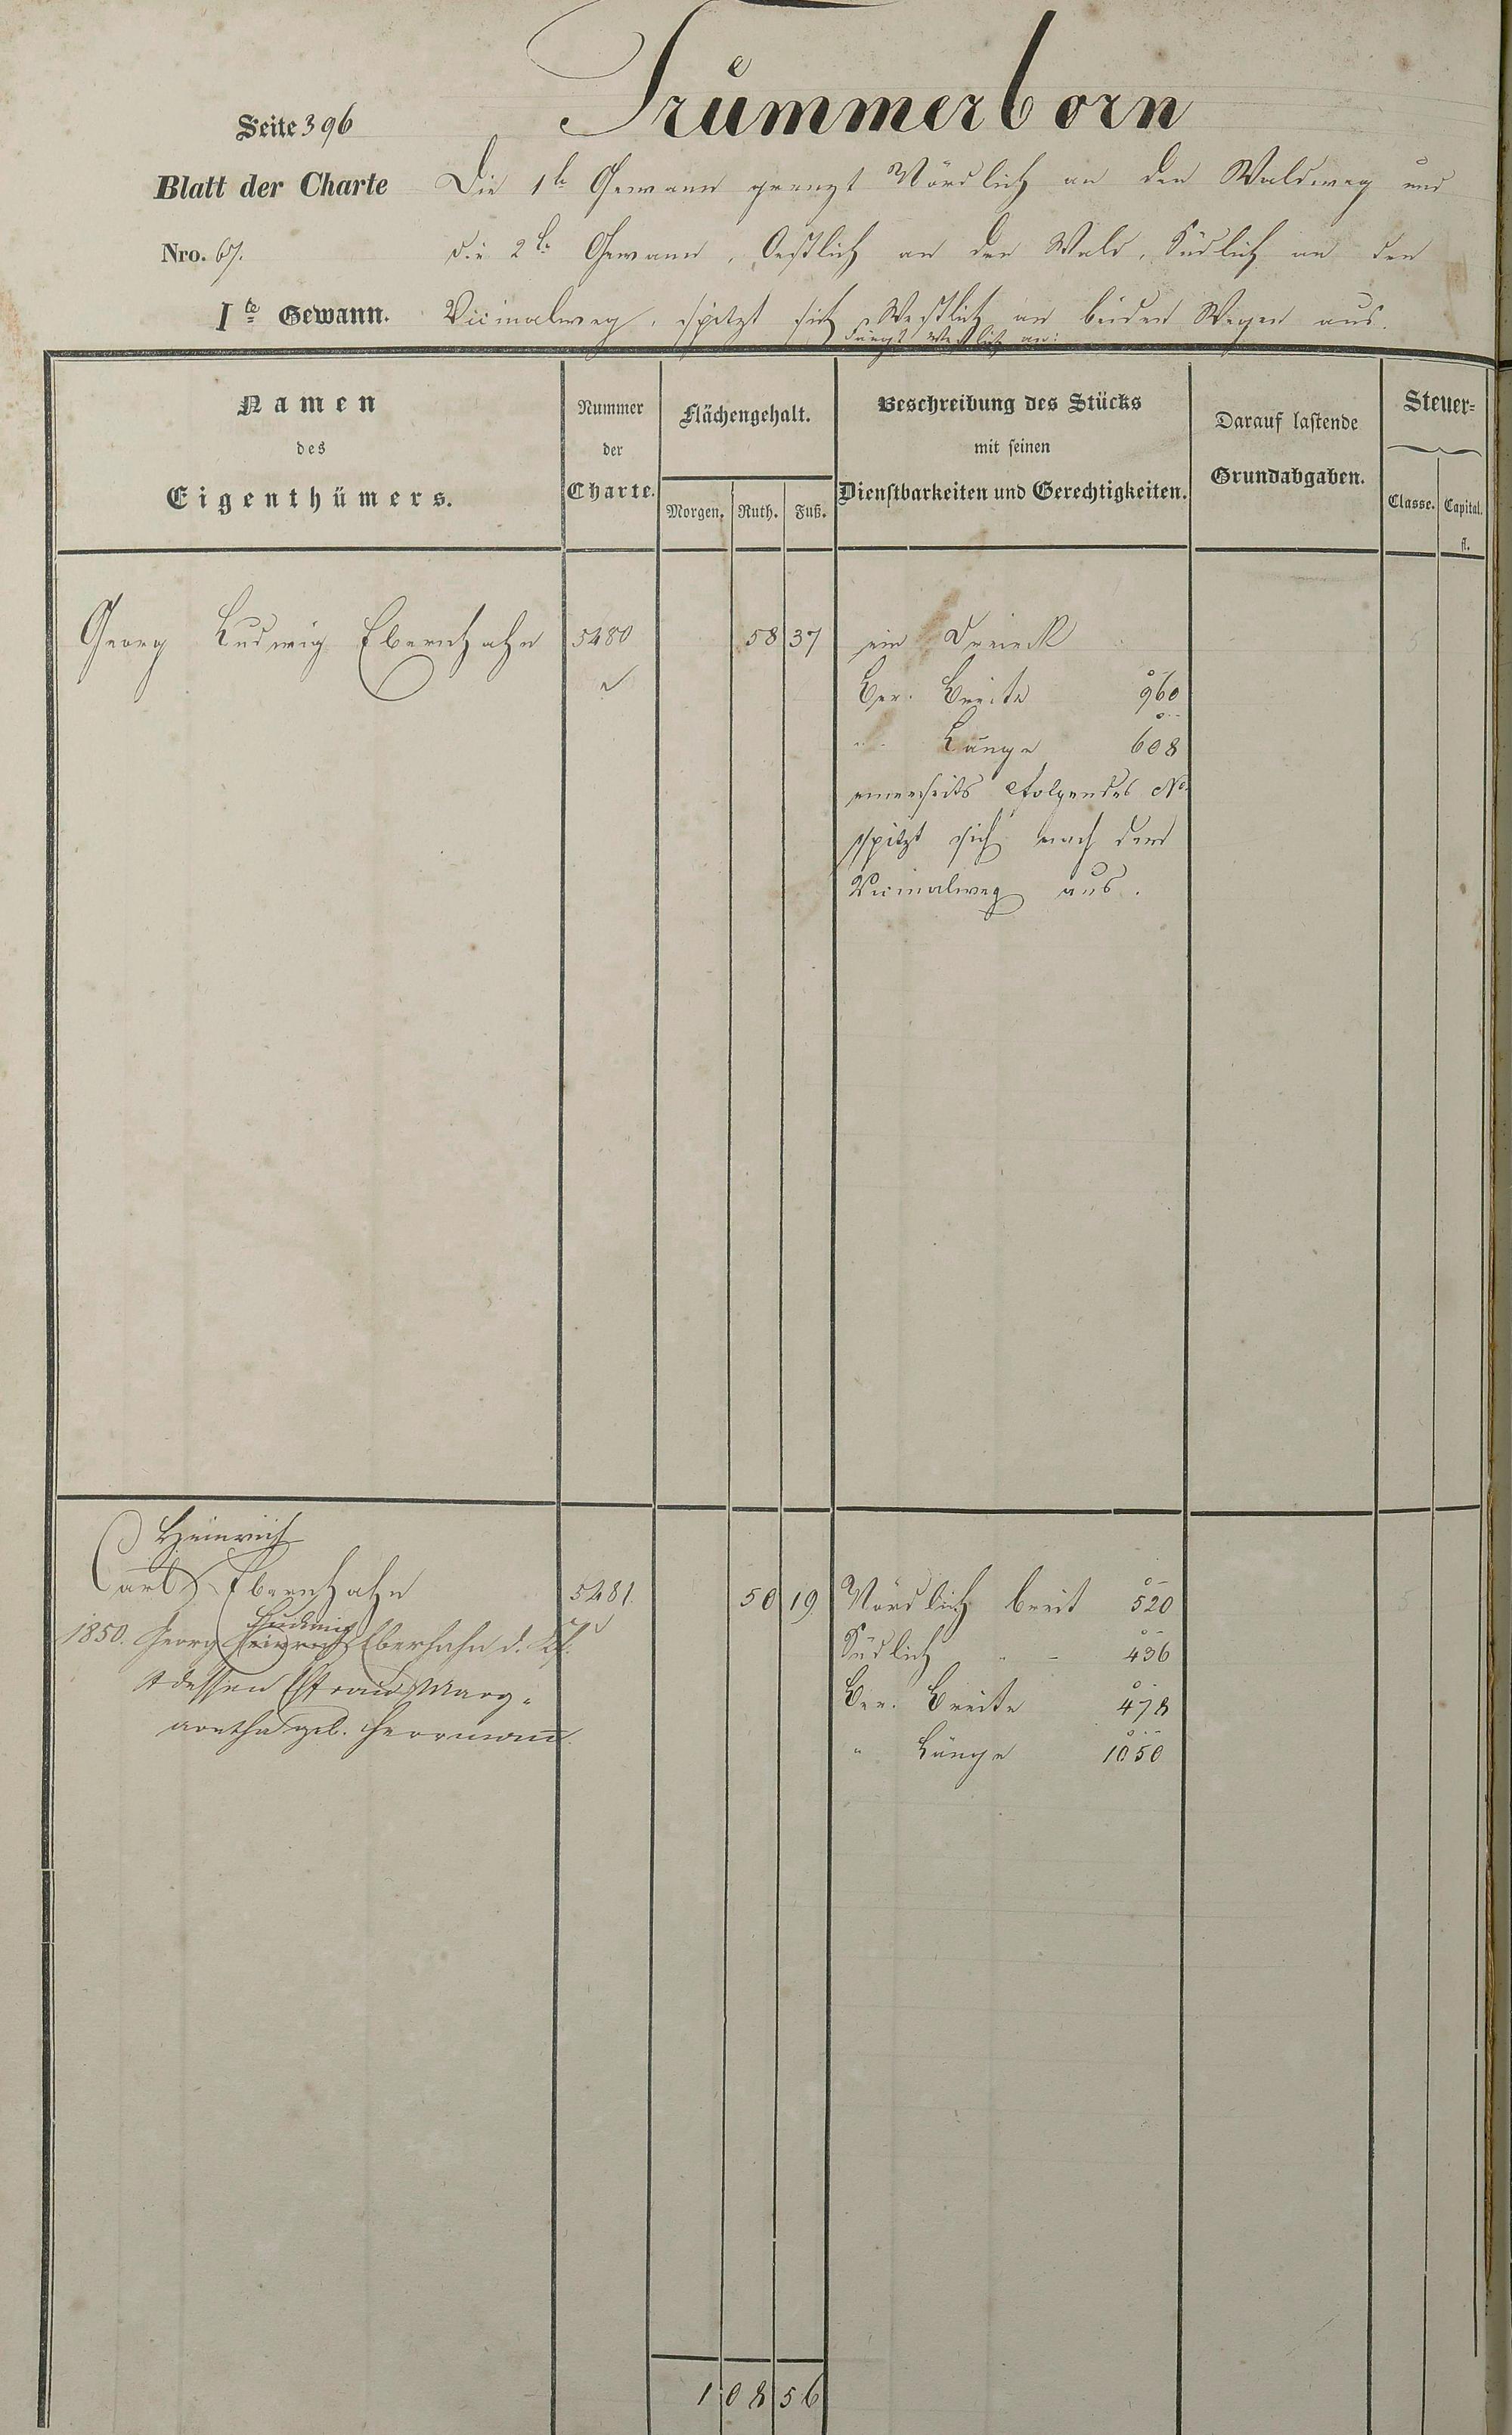 Trümmerborn
Seite 396
Blatt der Charte
Nro. 67.
Ite Gewann.
Die 1te Gewann grenzt Nördlich an den Waldweg und
die 2te Gewann, Oestlich an den Wald, Südlich an den
Vicinalweg, spitzt sich Westlich an beiden Wegen aus.
Fängt Westlich an:
Namen
des
Eigenthümers.
Nummer
der
Charte.
Flächengehalt.
Morgen. Ruth. Fuß.
Beschreibung des Stücks
mit seinen
Dienstbarkeiten und Gerechtigkeiten.
Darauf lastende
Grundabgaben.
Steuer-
Classe. Capital.
fl.
Georg Ludwig Ebernhahn 5480 58 37 ein Dreieck
Ber. Breite 960
" Länge 608
einerseits folgendes No
spitzt sich nach dem
Vicinalweg aus.
Heinrich
Carl Ebernhahn 5481. 50 19 Nördlich breit 520
Ludwig
1850. Georg Heinrich Eberhahn d.
Südlich " - 436
& dessen Ehefrau Marg-
Ber. Breite 478
aretha geb. Herrmann
" Länge 1050
1 08 56